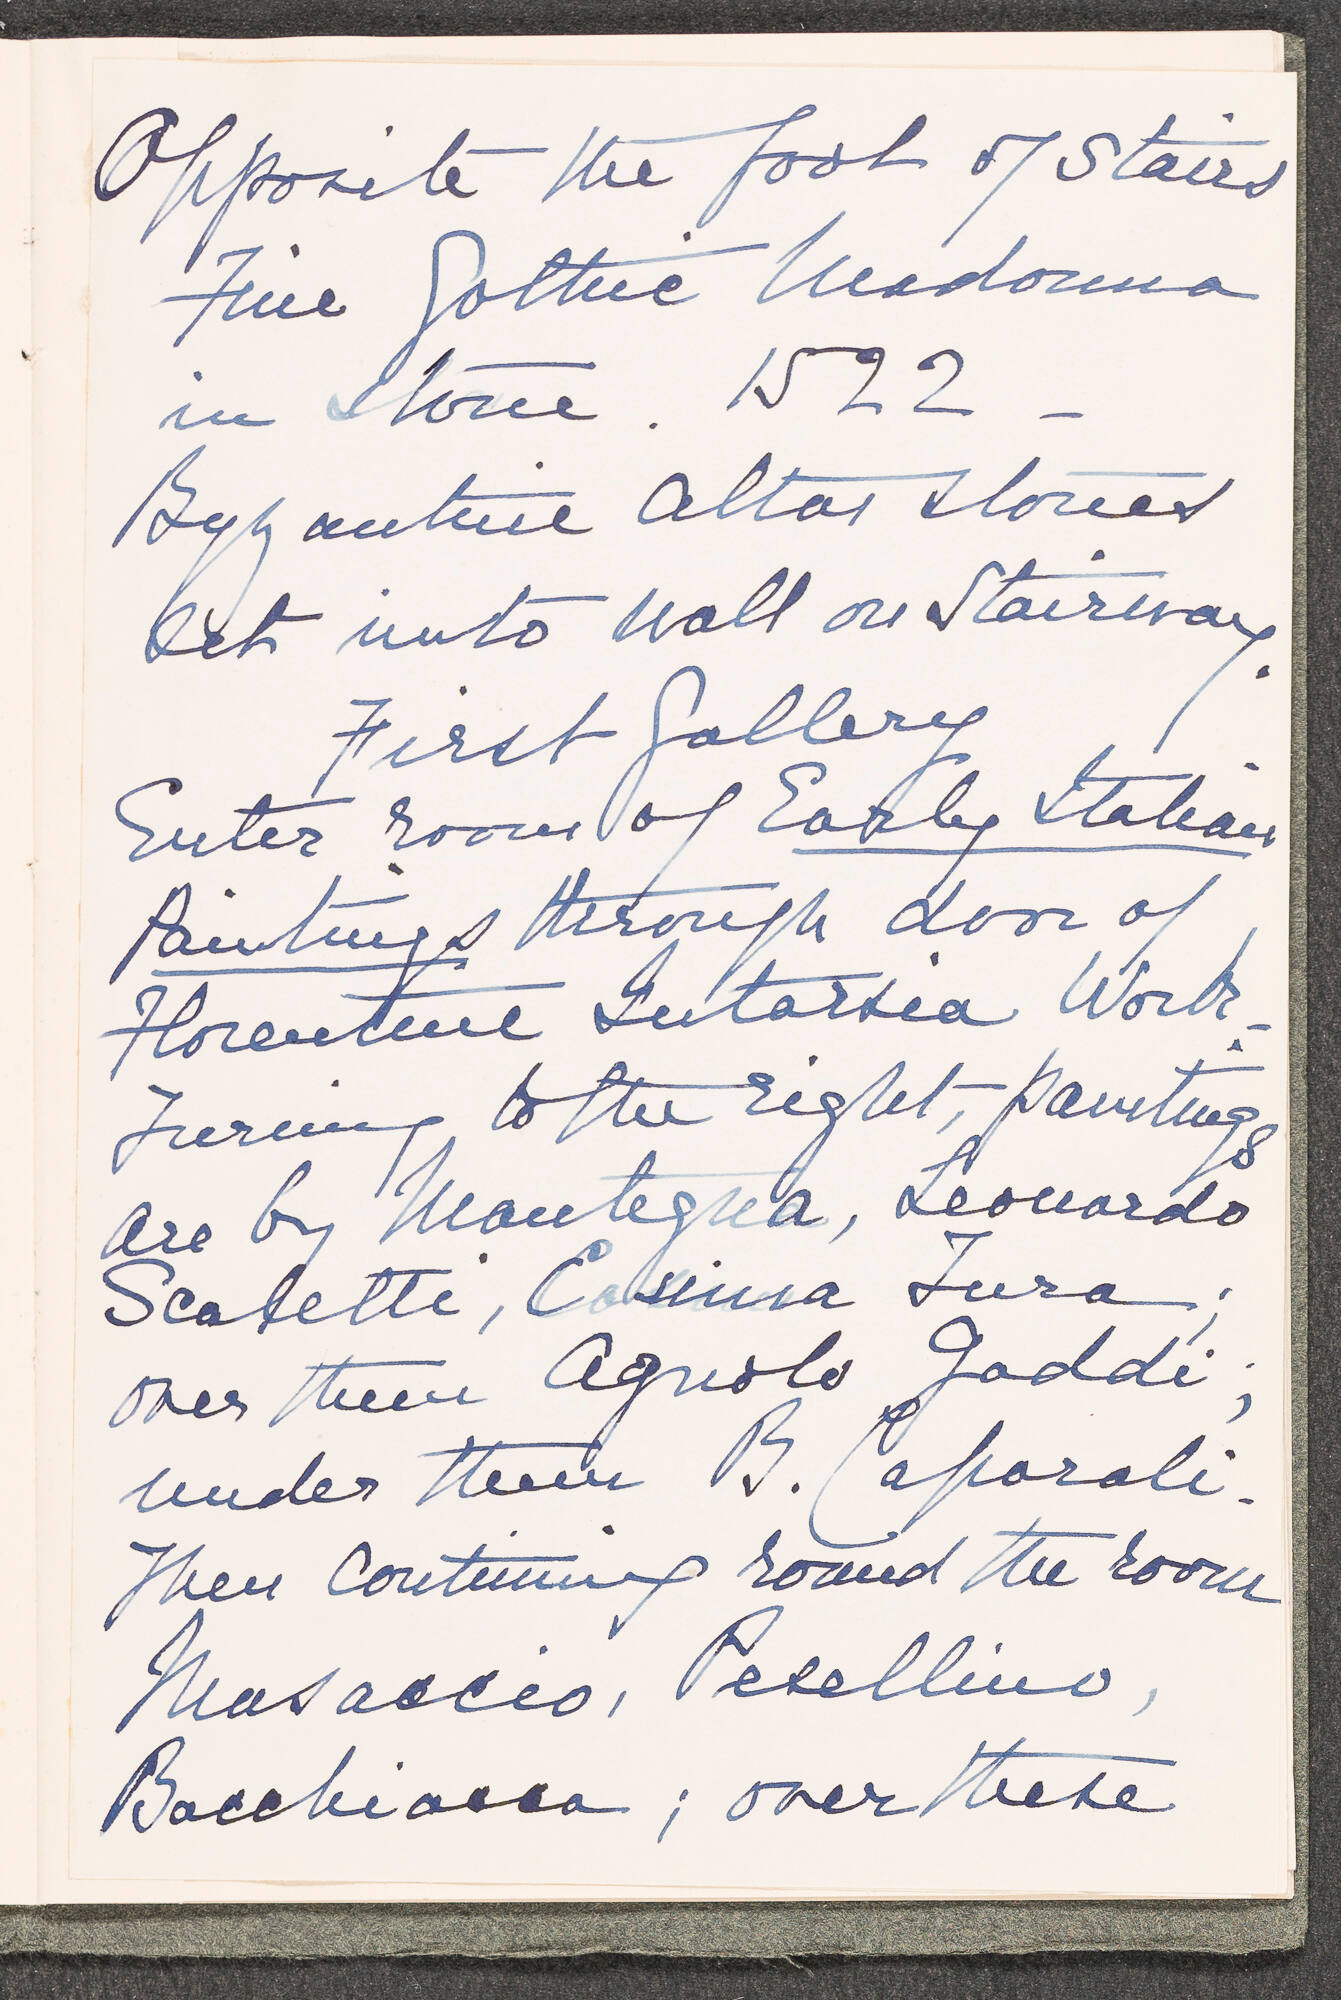 Opposite the foot of Stairs
Fine Gothic Madonna
in stone. 1522 -
Byzantine altar stones
set into wall on Stairway.
First Gallery
Enter room of Early Italian
Paintings through door of
Florentine Intarsia Work -
Turning to the right, paintings
are by Mantegna, Leonardo
Scaletti, Cosima Tura;
over them Agnolo Gaddi;
under them B. Caporali.
Then continuing round the room
Masaccio, Pesellino,
Bacchiacca; over these